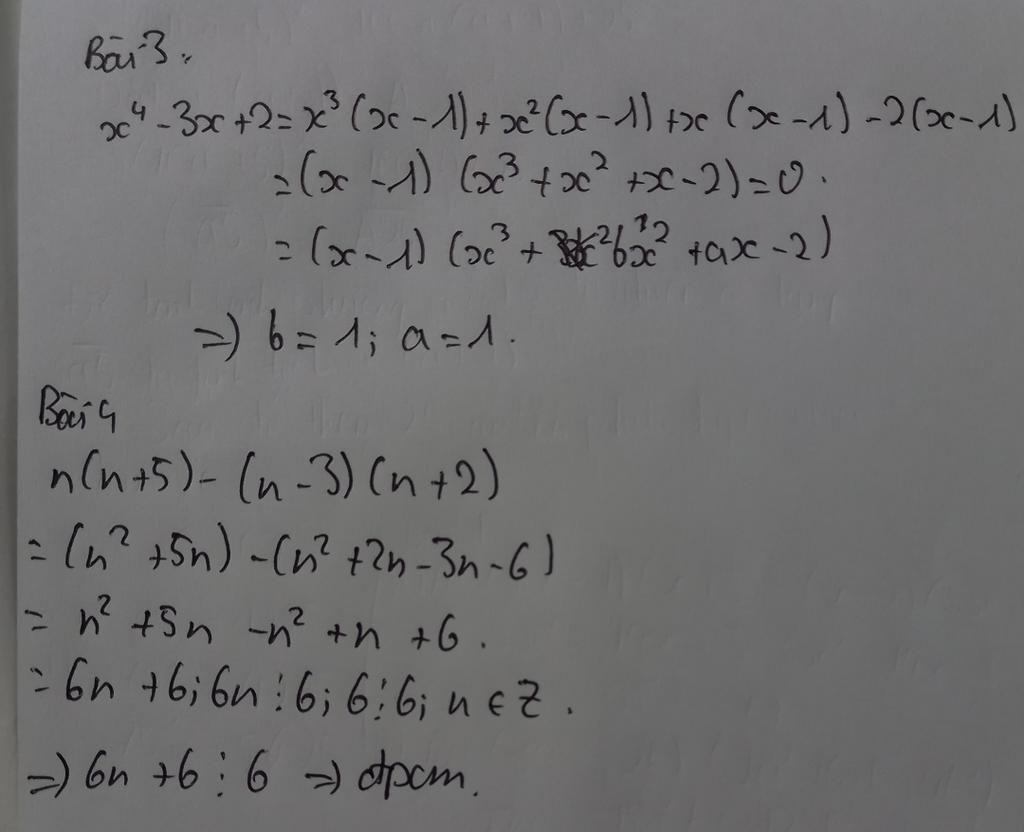 Bài 3:
x⁴ - 3x + 2 = x³(x - 1) + x²(x - 1) + x(x - 1) - 2(x - 1)
= (x - 1) (x³ + x² + x - 2) = 0.
= (x - 1) (x³ + bx² + ax - 2)
=> b = 1; a = 1.
Bài 4
n(n+5) - (n - 3)(n + 2)
= (n² + 5n) - (n² + 2n - 3n - 6)
= n² + 5n - n² + n + 6.
= 6n + 6; 6n ⋮ 6; 6 ⋮ 6; n ∈ Z.
=> 6n + 6 ⋮ 6 => đpcm.